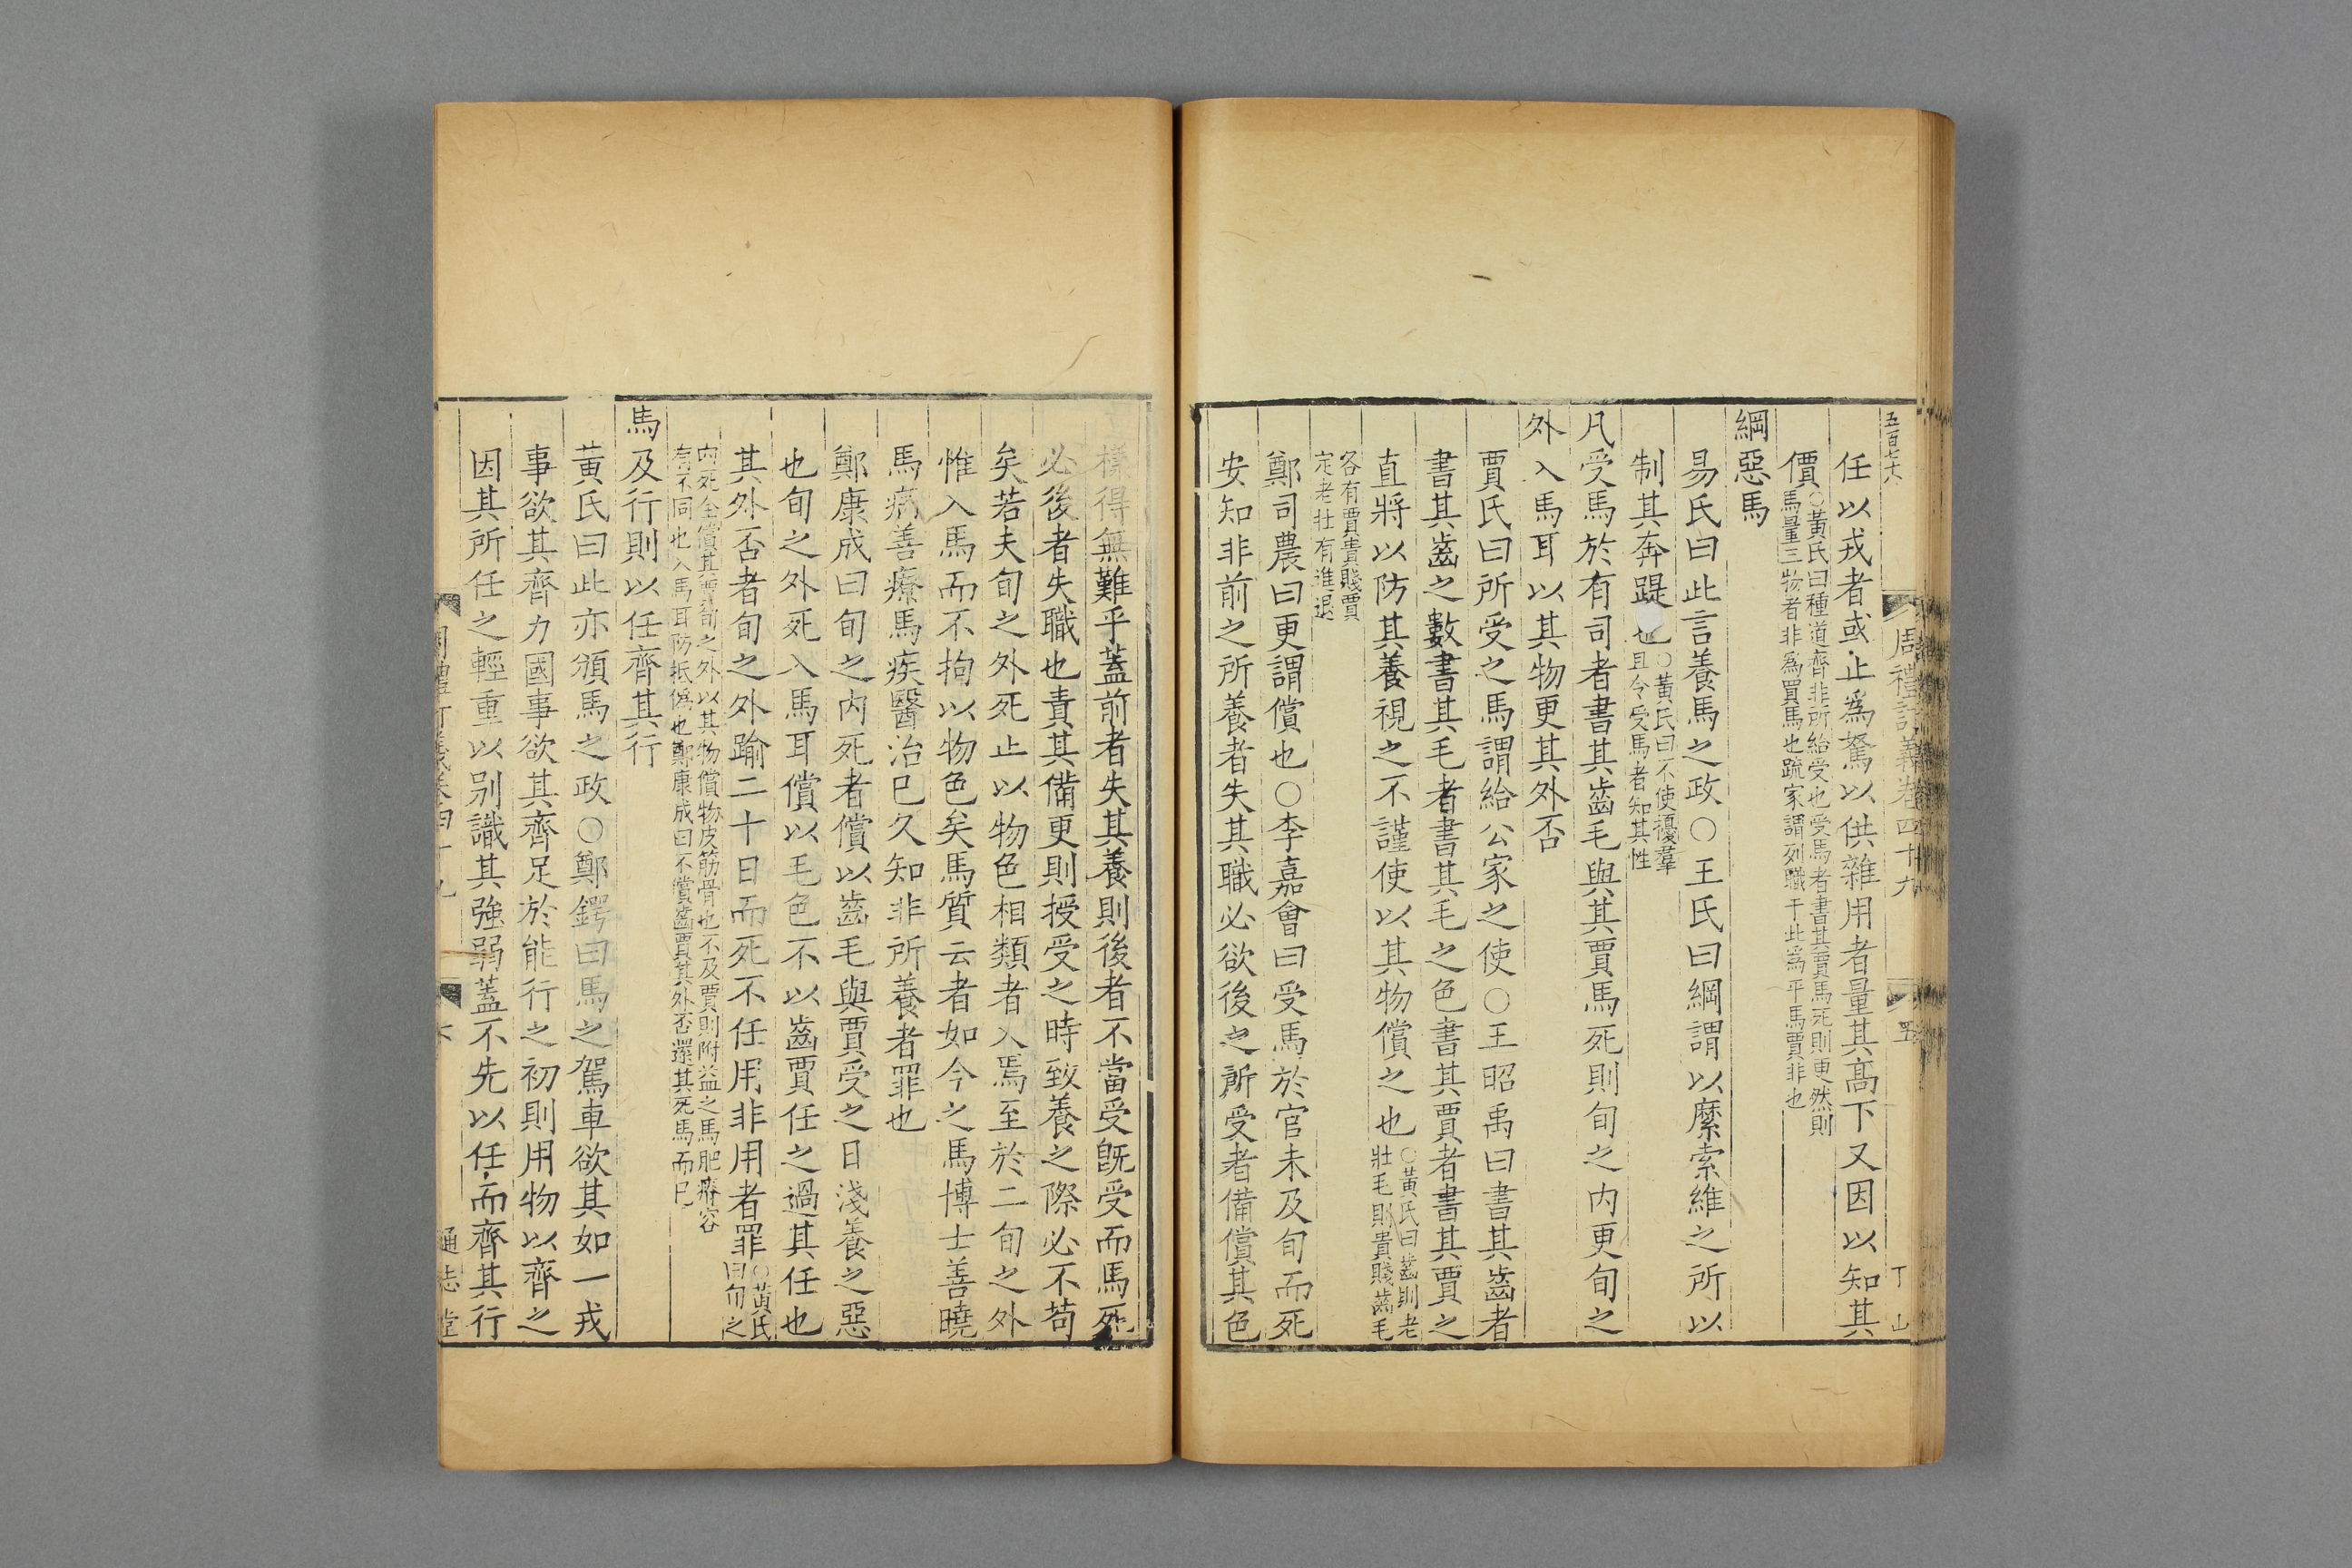 五百七十八
周禮訂義卷四十九
五
丁山
任以戎者或止爲駑以供雜用者量其高下又因以知其
價
○黃氏曰種道齊非所給受也受馬者書其賈馬死則更然則
馬量三物者非爲買馬也䟽家謂列職于此爲平馬賈非也
綱惡馬
易氏曰此言養馬之政○王氏曰綱謂以縻索維之所以
制其奔踶也
○黃氏曰不使擾羣
且令受馬者知其性
凡受馬於有司者書其齒毛與其賈馬死則旬之内更旬之
外入馬耳以其物更其外否
賈氏曰所受之馬謂給公家之使○王昭禹曰書其齒者
書其齒之數書其毛者書其毛之色書其賈者書其賈之
直將以防其養視之不謹使以其物償之也
○黃氏曰齒則老
壯毛則貴賤齒毛
各有賈貴賤賈
定老壯有進退
鄭司農曰更謂償也○李嘉會曰受馬於官未及旬而死
安知非前之所養者失其職必欲後之所受者備償其色
樣得無難乎蓋前者失其養則後者不當受旣受而馬死
必後者失職也責其備更則授受之時致養之際必不苟
矣若夫旬之外死止以物色相類者入焉至於二旬之外
惟入馬而不拘以物色矣馬質云者如今之馬博士善曉
馬病善療馬疾醫治已久知非所養者罪也
鄭康成曰旬之内死者償以齒毛與賈受之日淺養之惡
也旬之外死入馬耳償以毛色不以齒賈任之過其任也
其外否者旬之外踰二十日而死不任用非用者罪
○黃氏
曰旬之
内死全償其直旬之外以其物償物皮筋骨也不及賈則附益之馬肥瘠容
有不同也入馬耳防抵僞也鄭康成曰不償齒賈其外否還其死馬而已
馬及行則以任齊其行
黃氏曰此亦頒馬之政○鄭鍔曰馬之駕車欲其如一戎
事欲其齊力國事欲其齊足於能行之初則用物以齊之
因其所任之輕重以别識其強弱蓋不先以任而齊其行
周禮訂義卷四十九
六
通志堂